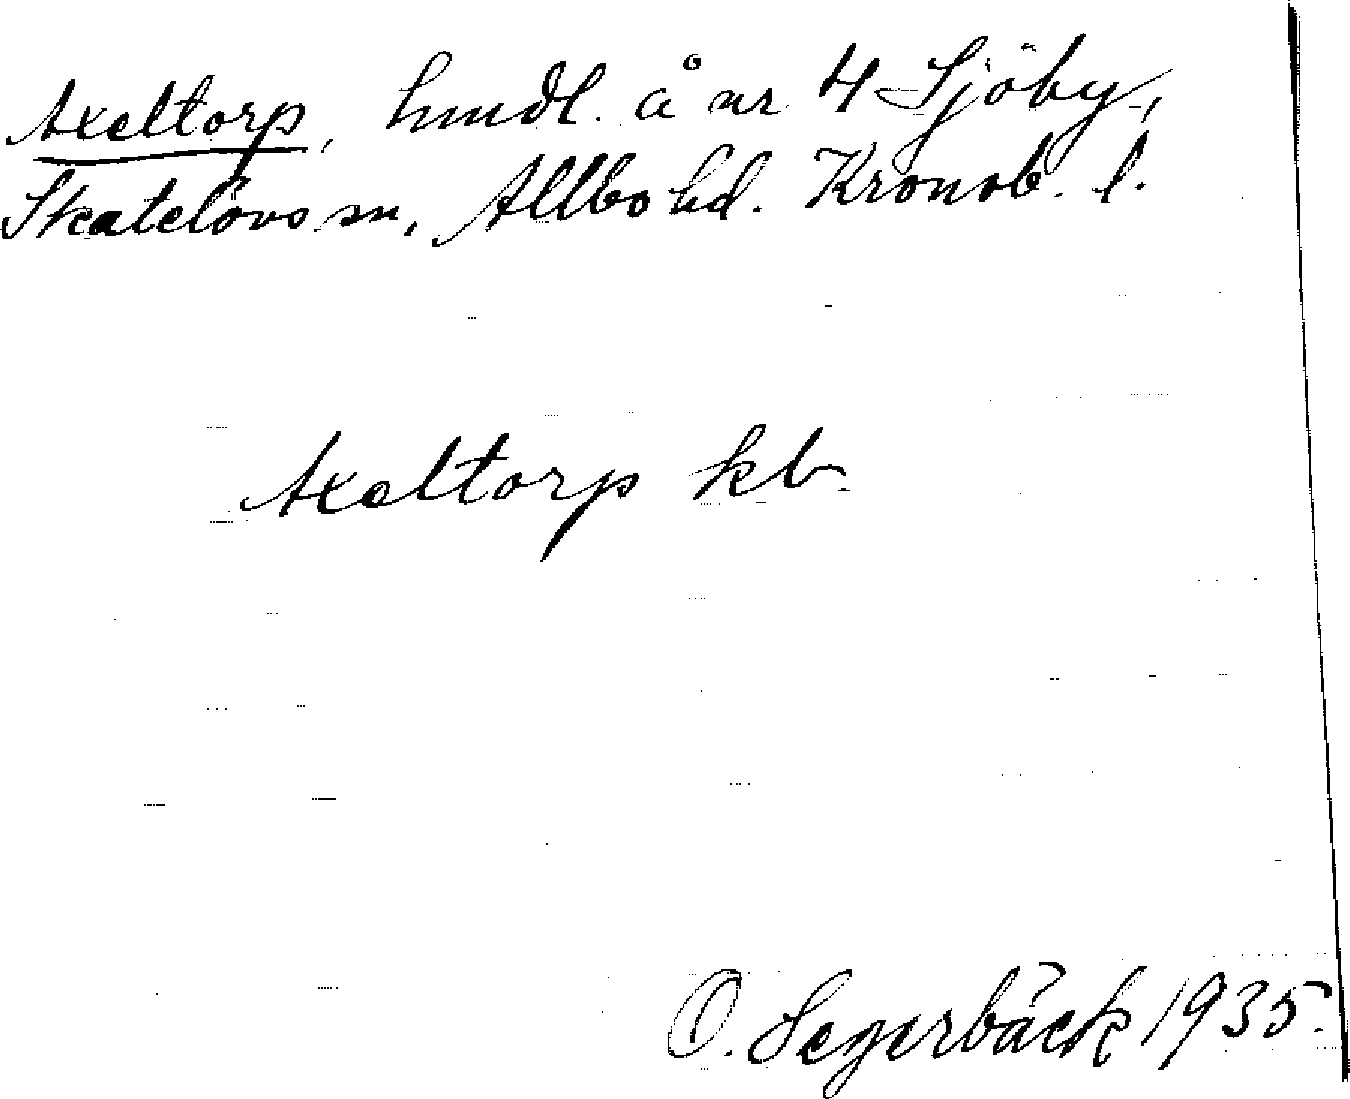 Axeltorp, hmdl. å nr 4 Sjöby,
Skatelövs sn, Allbo hd. Kronob. l.
Axeltorp kb.
O. Segerbäck 1935.